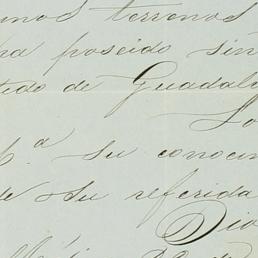 unos terrenos
ha poseido sin
tido de Guadal
So
C.ª su conocim
de su referida
Dio